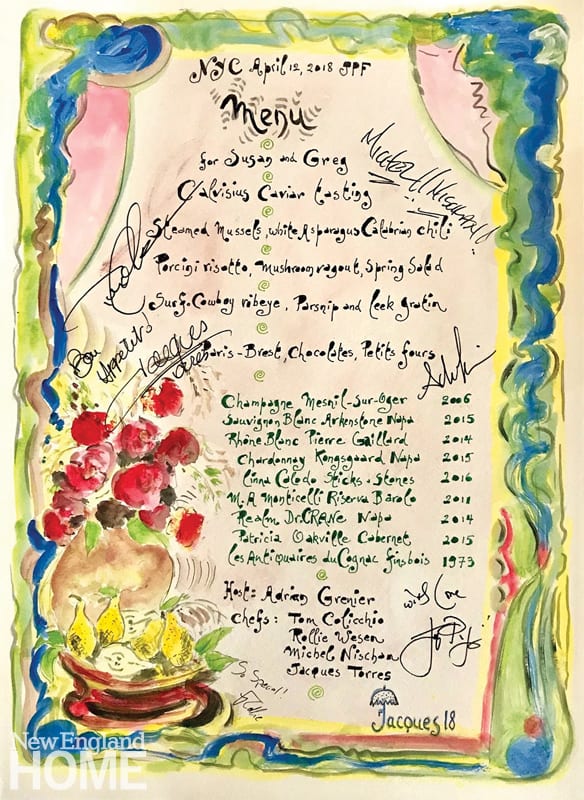 NYC April 12, 2018 JPF
Menu
for Susan and Greg
Calvisius Caviar tasting
Steamed Mussels, white Asparagus Calabrian chili
Porcini risotto, Mushroom ragout, Spring Salad
Surf. Cowboy ribeye, Parsnip and leek gratin
Paris-Brest, Chocolates, Petits fours
Bon
Appetito
Jacques
Champagne Mesnil-Sur-Oger 2006
Sauvignon Blanc Arkenstone Napa 2015
Rhône Blanc Pierre Gaillard 2014
Chardonnay Kongsgaard Napa 2015
Linna Calodo Sticks & Stones 2016
M.A Monticelli Riserva Barolo 2011
Realm Dr. CRANE Napa 2014
Patricia Oakville Cabernet 2015
les Antiquaires du Cognac finsbois 1973
Host: Adrian Grenier
Chefs: Tom Colicchio
Rollie Wesen
Michel Nischan
Jacques Torres
with Love
So Special!
Jacques 18
New England
HOME